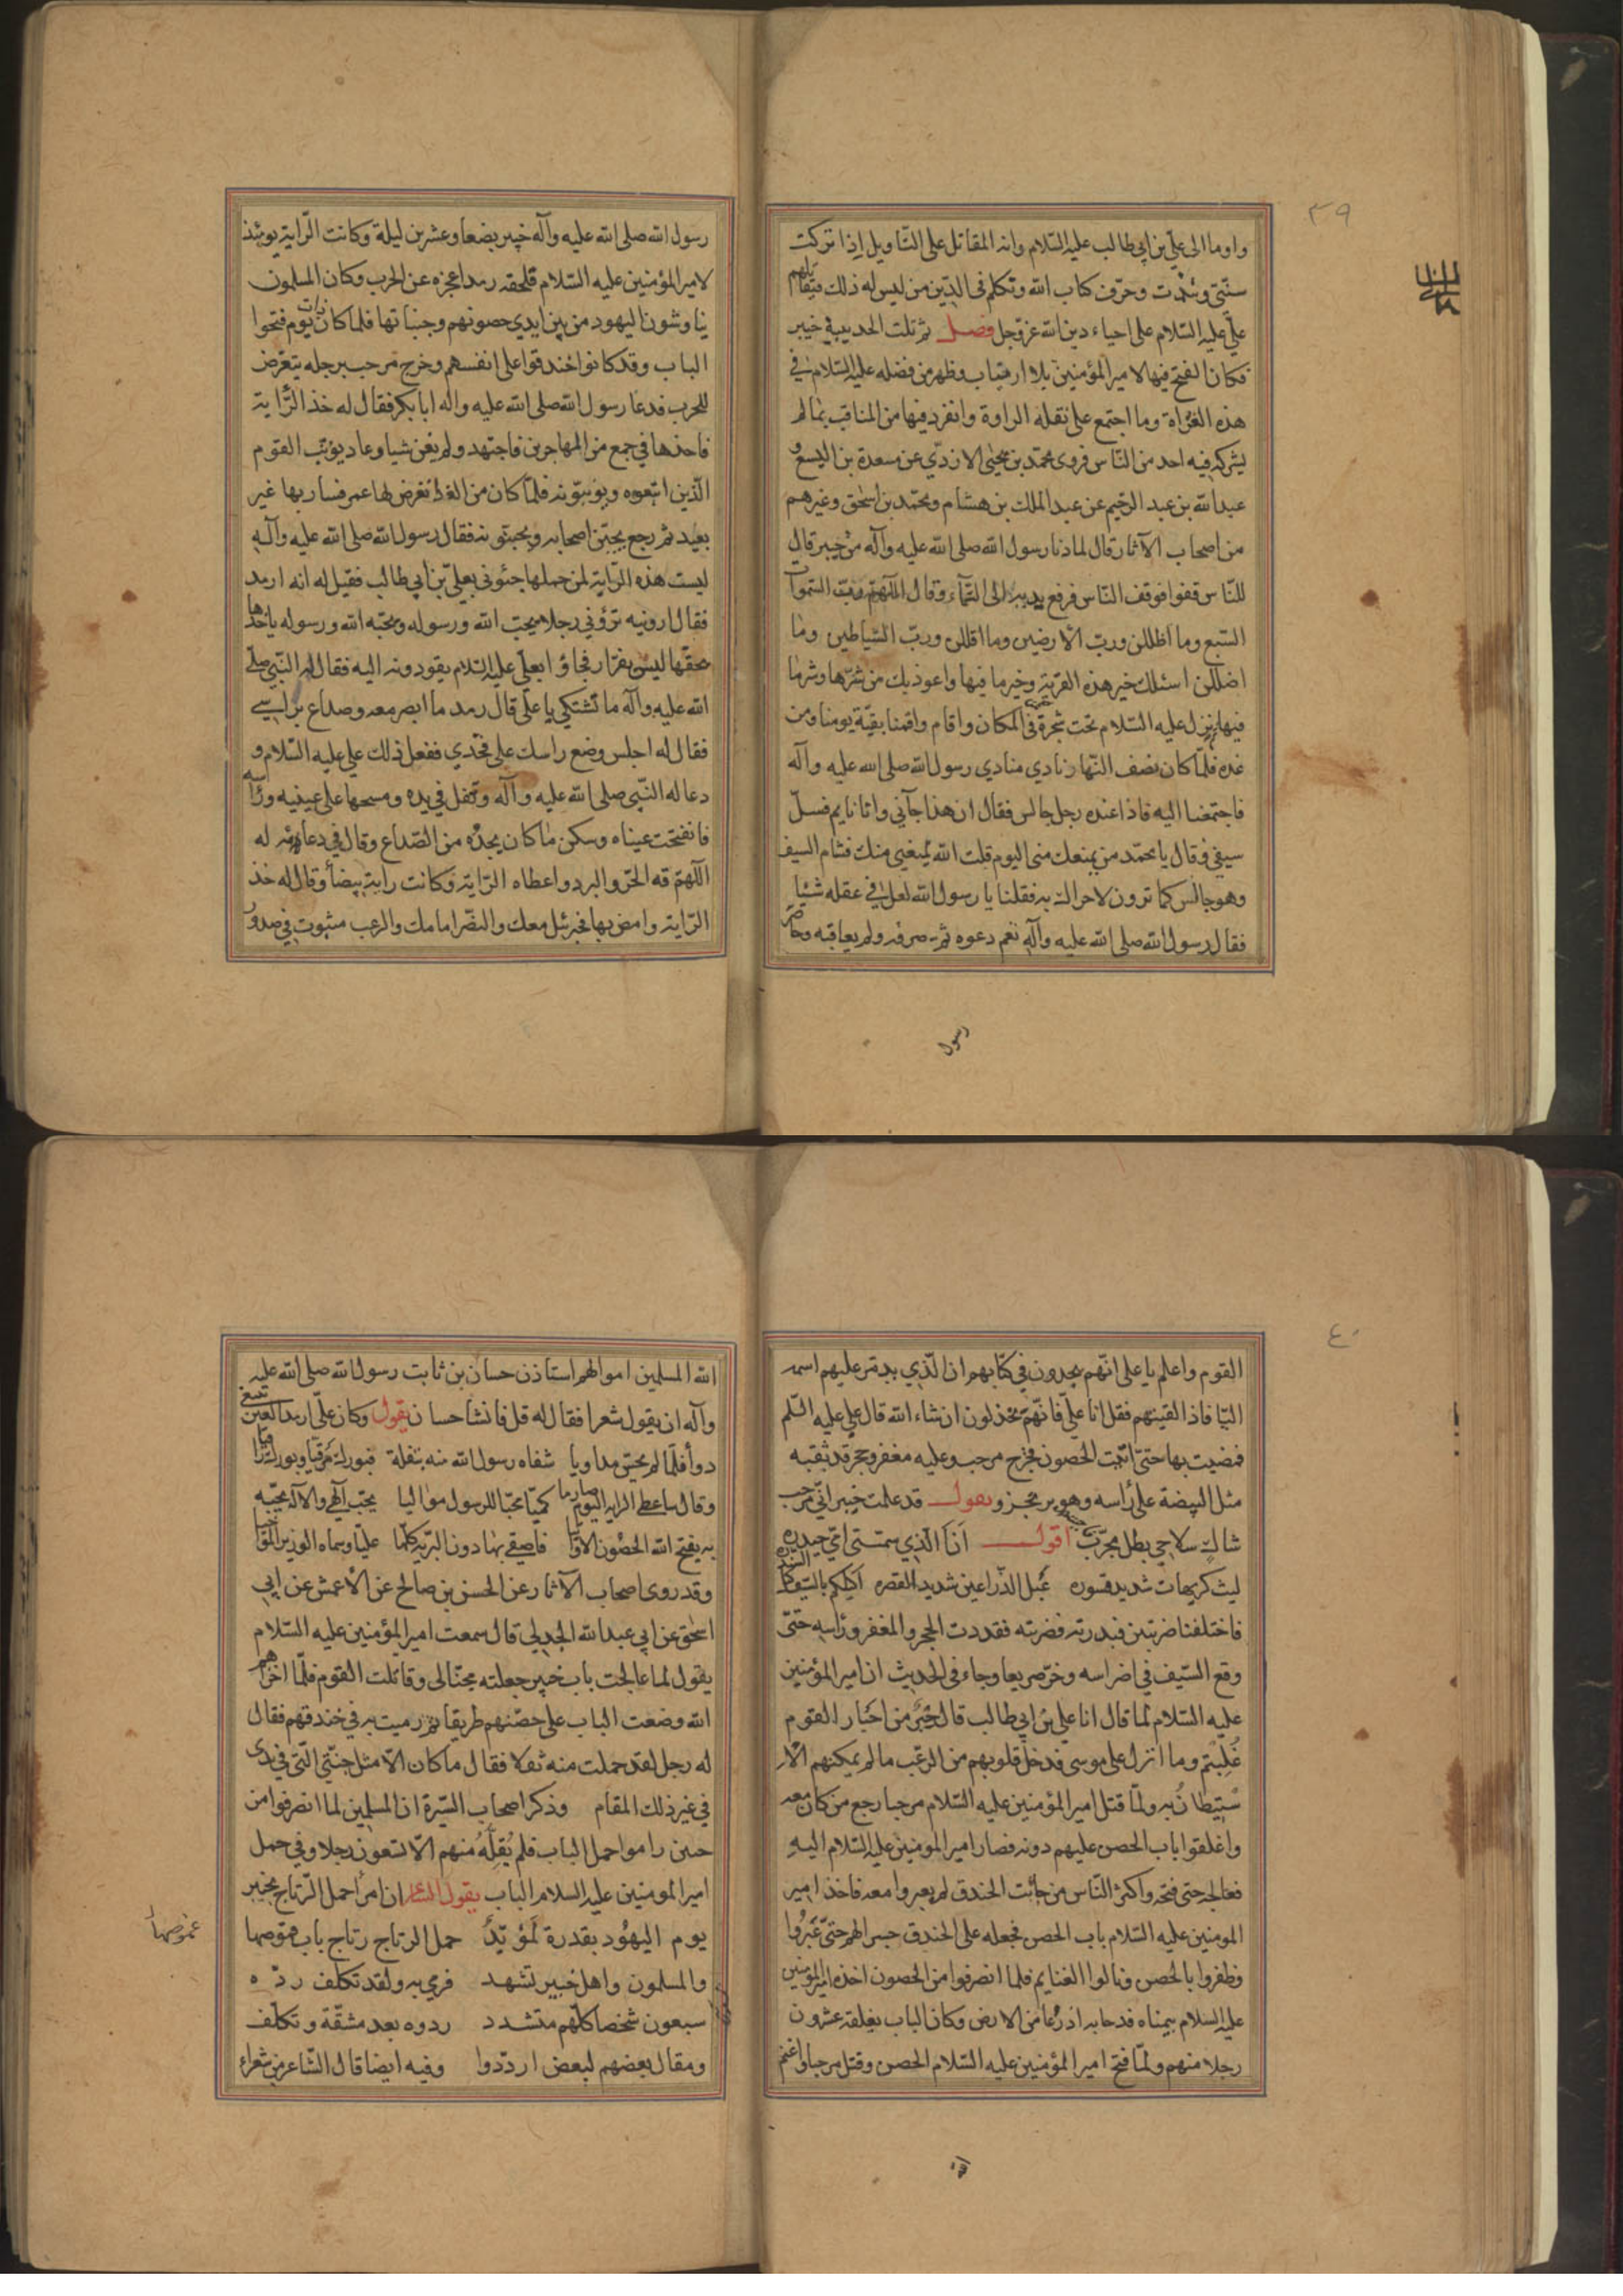 ٣٩
واوما الى علي بن ابي طالب عليه السلام وانه المقاتل على التاويل اذا تركت
سنتي ونبذت وحرف كتاب الله وتكلم في الدين من ليس له ذلك فيقاتلهم
علي عليه السلام على احياء دين الله عز وجل فصل ثم تلت الحديبية خيبر
فكان الفتح فيها لامير المؤمنين بلا ارتياب وظهر من فضله عليه السلام في
هذه الغزاة وما اجتمع على نقله الرواة وانفرد فيها من المناقب بما لم
يشركه فيه احد من الناس فروى محمد بن يحيى الازدي عن مسعدة بن اليسع و
عبد الله بن عبد الرحيم عن عبد الملك بن هشام ومحمد بن اسحق وغيرهم
من اصحاب الآثار قال لما دنا رسول الله صلى الله عليه وآله من خيبر قال
للناس قفوا فوقف الناس فرفع يديه الى السماء وقال اللهم رب السموات
السبع وما اظللن ورب الارضين وما اقللن ورب الشياطين وما
اضللن اسئلك خير هذه القرية وخير ما فيها واعوذ بك من شرها وشر ما
فيها ثم نزل عليه السلام تحت شجرة في المكان واقام واقمنا بقية يومنا ومن
غده فلما كان نصف النهار نادي منادي رسول الله صلى الله عليه وآله
فاجتمعنا اليه فاذا عنده رجل جالس فقال ان هذا جآني وانا نايم فسل
سيفي وقال يا محمد من يمنعك مني اليوم قلت الله يمنعني منك فشام السيف
وهو جالس كما ترون لا حراك به فقلنا يا رسول الله لعل في عقله شيئا
فقال رسول الله صلى الله عليه وآله نعم دعوه ثم صرفه ولم يعاقبه وحاصر
رسول
رسول الله صلى الله عليه وآله خيبر بضعا وعشرين ليلة وكانت الراية يومئذ
لامير المؤمنين عليه السلام فلحقه رمد اعجزه عن الحرب وكان المسلمون
يناوشون اليهود من بين ايدي حصونهم وجنباتها فلما كان ذات يوم فتحوا
الباب وقد كانوا خندقوا على انفسهم وخرج مرحب برجله يتعرض
للحرب فدعا رسول الله صلى الله عليه واله ابا بكر فقال له خذ الراية
فاخذها في جمع من المهاجرين فاجتهد ولم يغن شيا وعاد يؤنب القوم
الذين اتبعوه ويؤنبونه فلما كان من الغد تعرض لها عمر فسار بها غير
بعيد ثم رجع يجبن اصحابه ويجبنونه فقال رسول الله صلى الله عليه وآله
ليست هذه الراية لمن حملها جئوني بعلي بن ابي طالب فقيل له انه ارمد
فقال ارونيه تروني رجلا يحب الله ورسوله ويحبه الله ورسوله ياخذها
بحقها ليس بفرار فجاؤا بعلي عليه السلام يقودونه اليه فقال له النبي صلى
الله عليه وآله ما تشتكي يا على قال رمد ما ابصر معه وصداع براسي
فقال له اجلس وضع راسك على فخذي ففعل ذلك علي عليه السلام و
دعا له النبي صلى الله عليه وآله وتفل في يده ومسحها على عينيه وراسه
فانفتحت عيناه وسكن ما كان يجده من الصداع وقال في دعائه له
اللهم قه الحر والبرد واعطاه الراية وكانت راية بيضأ وقال له خذ
الراية وامض بها فجبرئيل معك والنصر امامك والرعب مثبوت في صدور
٤٠
القوم واعلم يا على انهم يجدون في كتابهم ان الذي يدمر عليهم اسمه
اليا فاذا لقيتهم فقل انا علي فانهم يخذلون انشاء الله قال علي عليه السلم
فمضيت بها حتى اتيت الحصون فخرج مرحب وعليه مغفر وحجر قد ثقبه
مثل البيضة على رأسه وهو يرتجز ويقول قد علمت خيبر اني مرحب
شاك سلاحي بطل مجرب اقول انا الذي سمتني امي حيدره
ليث كريهات شديد قسوره عبل الذراعين شديد القصره اكيلكم بالسيف كيل السندره
فاختلفنا ضربتين فبدرته فضربته فقددت الحجر والمغفر وراسه حتى
وقع السيف في اضراسه وخر صريعا وجاء في الحديث ان امير المؤمنين
عليه السلام لما قال انا علي بن ابي طالب قال حبر من احبار القوم
غلبتم وما انزل على موسى فدخل قلوبهم من الرعب ما لم يمكنهم الا
ستيطان به ولما قتل امير المؤمنين عليه السلام مرحبا رجع من كان معه
واغلقوا باب الحصن عليهم دونه فصار امير المومنين عليه السلام اليه
فعالجه حتى فتحه واكثر الناس من جانب الخندق لم يعبروا معه فاخذ امير
المومنين عليه السلام باب الحصن فجعله على الخندق جسرا لهم حتى عبروا
وظفروا بالحصن ونالوا الغنايم فلما انصرفوا من الحصون اخذه امير المومنين
عليه السلام بيمناه فدحا به اذرعا من الارض وكان الباب يغلقه عشرون
رجلا منهم ولما فتح امير المؤمنين عليه السلام الحصن وقتل مرحبا واغنم
الله
الله المسلمين اموالهم استاذن حسان بن ثابت رسول الله صلى الله عليه
وآله ان يقول شعرا فقال له قل فانشا حسان يقول وكان علي ارمد العين يبتغي
دوأ فلما لم يحس مداويا شفاه رسول الله منه بتفلة فبورك مرقيا وبورك راقيا
وقال ساعطي الراية اليوم صارما كميا محبا للرسول مواليا يحب الهي والاله يحبه
به يفتح الله الحصون الاوابيا فاصفى بها دون البرية كلها عليا وسماه الوزير المواخيا
وقد روى اصحاب الآثار عن الحسن بن صالح عن الاعمش عن ابي
اسحق عن ابي عبد الله الجدلي قال سمعت امير المؤمنين عليه السلام
يقول لما عالجت باب خيبر جعلته مجنا لي وقاتلت القوم فلما اخزاهم
الله وضعت الباب على حصنهم طريقا ثم رميت به في خندقهم فقال
له رجل لقد حملت منه ثقلا فقال ما كان الا مثل جنتي التي في يدي
في غير ذلك المقام وذكر اصحاب السيرة ان المسلمين لما انصرفوا من
حنين راموا حمل الباب فلم يقله منهم الا سبعون رجلا وفي حمل
امير المومنين عليه السلام الباب يقول الشاعر ان امرأ حمل الرتاج بخيبر
يوم اليهود بقدرة لمؤيد حمل الرتاج رتاج باب قموصها
والمسلمون واهل خيبر تشهد فرمي به ولقد تكلف رده
سبعون شخصا كلهم متشدد ردوه بعد مشقة وتكلف
ومقال بعضهم لبعض ارددوا وفيه ايضا قال الشاعر من شعراء